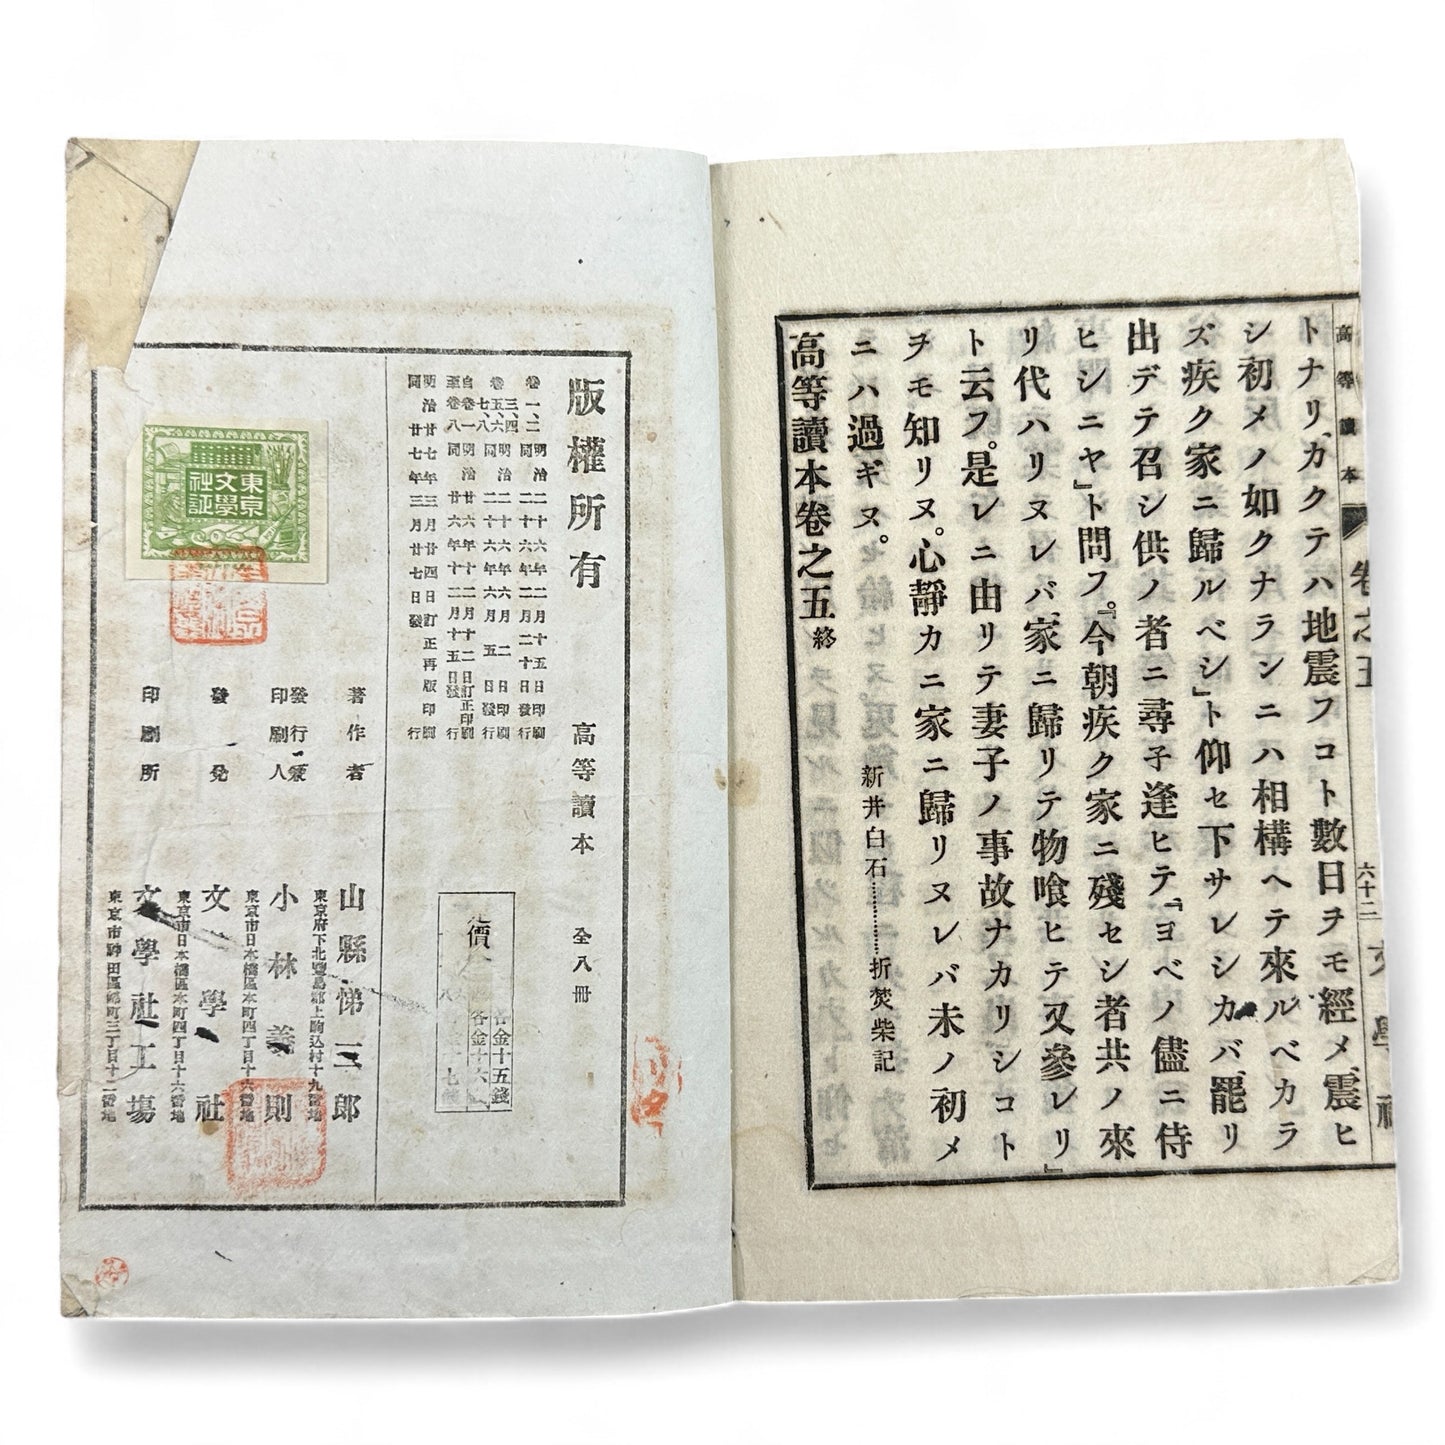 高等讀本
卷之五
六十二
文學社
トナリ、カクテハ地震フコト數日ヲモ經メ、震ヒ
シ初メノ如クナランニハ相構ヘテ來ルベカラ
ズ疾ク家ニ歸ルベシ」ト仰セ下サレシカバ、罷リ
出デテ召シ供ノ者ニ尋子逢ヒテ『ヨベノ儘ニ侍
ヒシニヤ」ト問フ。『今朝疾ク家ニ殘セシ者共ノ來
リ代ハリヌレバ、家ニ歸リテ物喰ヒテ又參レリ』
ト云フ。是レニ由リテ妻子ノ事故ナカリシコト
ヲモ知リヌ。心靜カニ家ニ歸リヌレバ未ノ初メ
ニハ過ギヌ。
新井白石…………折焚柴記
高等讀本卷之五終
版權所有
高等讀本 全八冊
卷一、二 明治二十六年二月十五日印刷
三、四 同二十六年二月二十日發行
卷五、六 明治二十六年六月二日印刷
七、八 同二十六年六月五日發行
自卷一 明治廿六年十二月十二日訂正印刷
至卷八 同廿六年十二月十五日發行
明治廿七年三月廿四日訂正再版印刷
同廿七年三月廿七日發行
定價
各金十五錢
各金十六
著作者 山縣悌三郎
東京府下北豐島郡上駒込村十九番地
發行兼
印刷人 小林義則
東京市日本橋區本町四丁目十六番地
發兌 文學社
東京市日本橋區本町四丁目十六番地
印刷所 文學社工場
東京市神田區錦町三丁目十二番地
東京
文學
社証